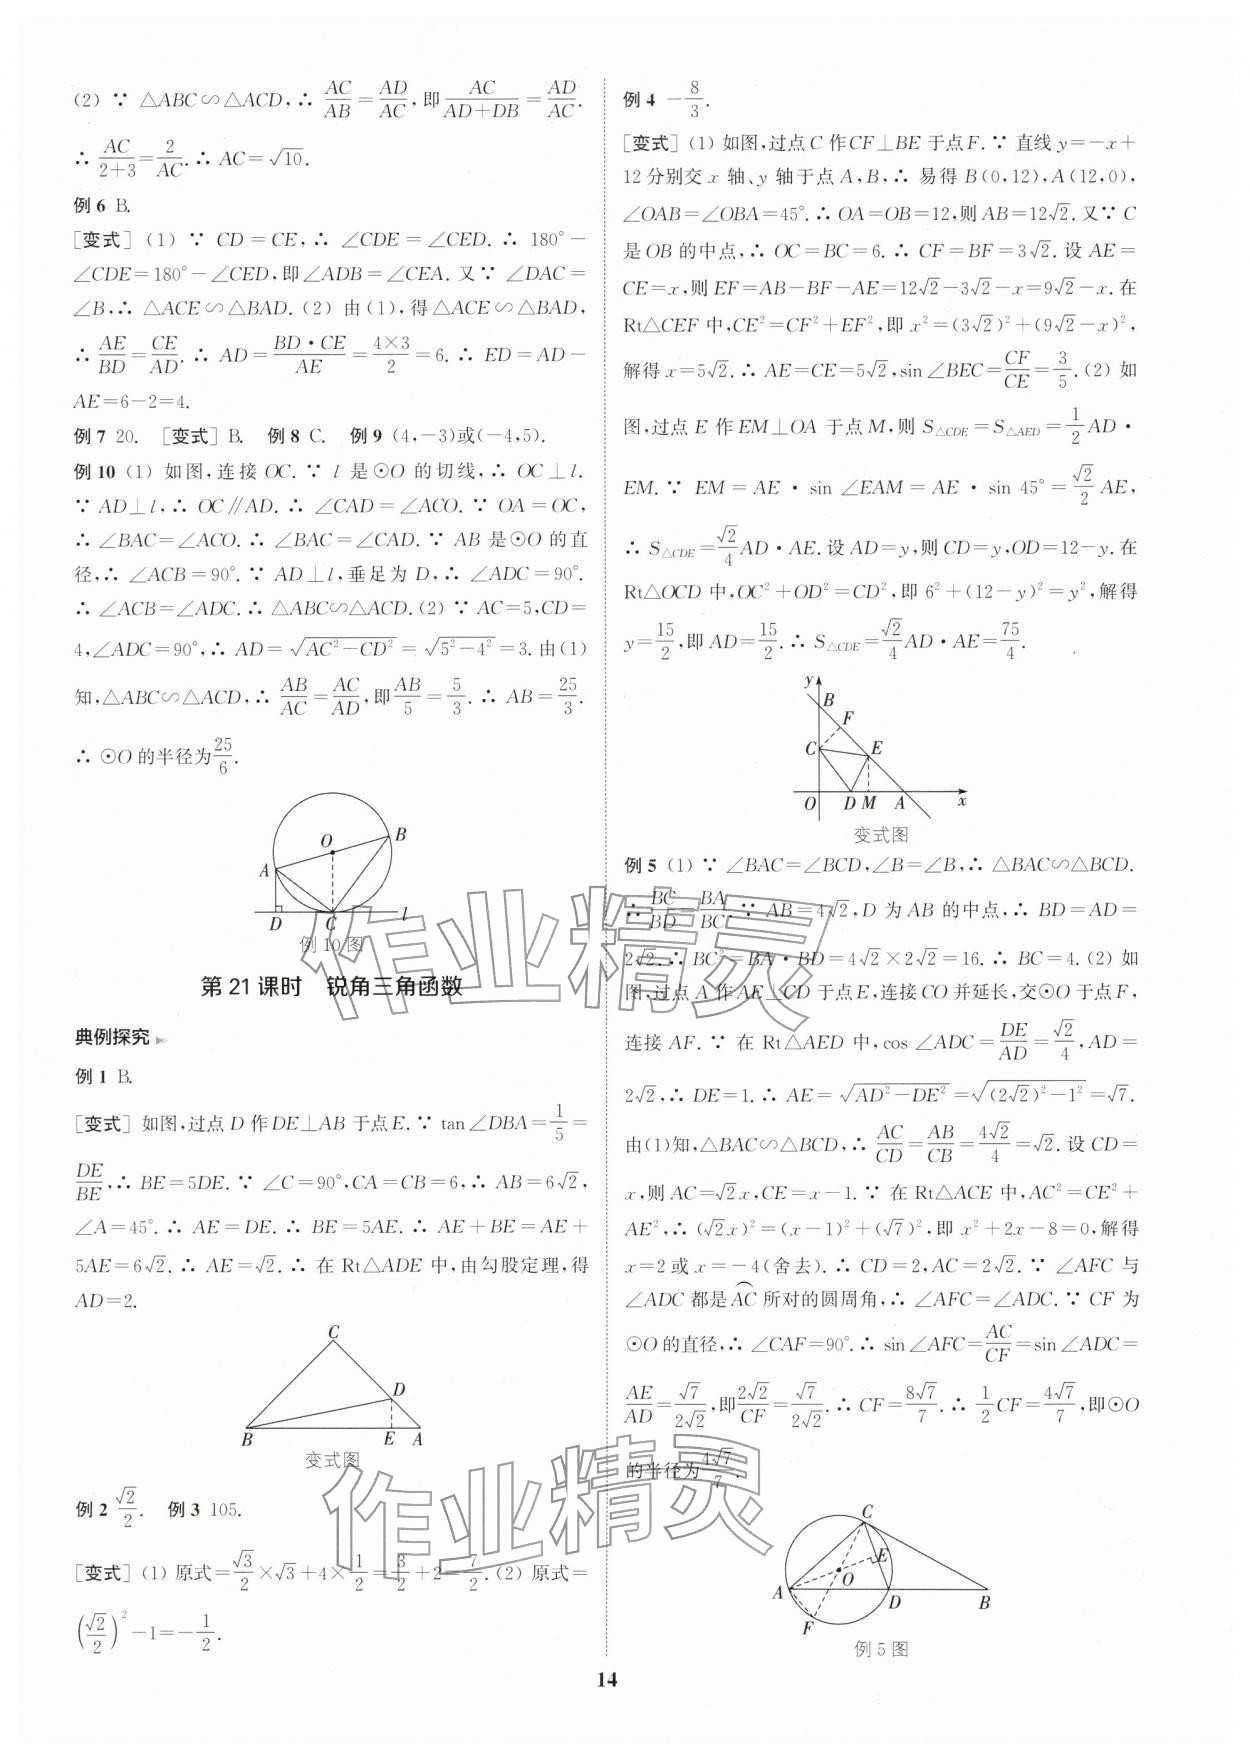 (2) ∵ △ABC∽△ACD,∴ AC/AB=AD/AC,即AC/(AD+DB)=AD/AC.
∴ AC/(2+3)=2/AC.∴ AC=√10.
例6 B.
[变式] (1) ∵ CD=CE,∴ ∠CDE=∠CED.∴ 180°-
∠CDE=180°-∠CED,即∠ADB=∠CEA.又∵ ∠DAC=
∠B,∴ △ACE∽△BAD.(2) 由(1),得△ACE∽△BAD,
∴ AE/BD=CE/AD.∴ AD=BD·CE/AE=4×3/2=6.∴ ED=AD-
AE=6-2=4.
例7 20. [变式] B. 例8 C. 例9 (4,-3)或(-4,5).
例10 (1) 如图,连接OC.∵ l是⊙O的切线,∴ OC⊥l.
∵ AD⊥l,∴ OC∥AD.∴ ∠CAD=∠ACO.∵ OA=OC,
∴ ∠BAC=∠ACO.∴ ∠BAC=∠CAD.∵ AB是⊙O的直
径,∴ ∠ACB=90°.∵ AD⊥l,垂足为D,∴ ∠ADC=90°.
∴ ∠ACB=∠ADC.∴ △ABC∽△ACD.(2) ∵ AC=5,CD=
4,∠ADC=90°,∴ AD=√(AC²-CD²)=√(5²-4²)=3.由(1)
知,△ABC∽△ACD,∴ AB/AC=AC/AD,即AB/5=5/3.∴ AB=25/3.
∴ ⊙O的半径为25/6.
O
B
A
D
C
l
例10图
第21课时 锐角三角函数
典例探究
例1 B.
[变式] 如图,过点D作DE⊥AB于点E.∵ tan∠DBA=1/5=
DE/BE,∴ BE=5DE.∵ ∠C=90°,CA=CB=6,∴ AB=6√2,
∠A=45°.∴ AE=DE.∴ BE=5AE.∴ AE+BE=AE+
5AE=6√2.∴ AE=√2.∴ 在Rt△ADE中,由勾股定理,得
AD=2.
C
D
B
E
A
变式图
例2 √2/2. 例3 105.
[变式] (1) 原式=√3/2×√3+4×1/2=3/2+2=7/2.(2) 原式=
(√2/2)²-1=-1/2.
例4 -8/3.
[变式] (1) 如图,过点C作CF⊥BE于点F.∵ 直线y=-x+
12分别交x轴、y轴于点A,B,∴ 易得B(0,12),A(12,0),
∠OAB=∠OBA=45°.∴ OA=OB=12,则AB=12√2.又∵ C
是OB的中点,∴ OC=BC=6.∴ CF=BF=3√2.设AE=
CE=x,则EF=AB-BF-AE=12√2-3√2-x=9√2-x.在
Rt△CEF中,CE²=CF²+EF²,即x²=(3√2)²+(9√2-x)²,
解得x=5√2.∴ AE=CE=5√2,sin∠BEC=CF/CE=3/5.(2) 如
图,过点E作EM⊥OA于点M,则S△CDE=S△AED=1/2AD·
EM.∵ EM=AE·sin∠EAM=AE·sin 45°=√2/2AE,
∴ S△CDE=√2/4AD·AE.设AD=y,则CD=y,OD=12-y.在
Rt△OCD中,OC²+OD²=CD²,即6²+(12-y)²=y²,解得
y=15/2,即AD=15/2.∴ S△CDE=√2/4AD·AE=75/4.
y
B
F
C
E
O
D
M
A
x
变式图
例5 (1) ∵ ∠BAC=∠BCD,∠B=∠B,∴ △BAC∽△BCD.
∴ BC/BD=BA/BC.∵ AB=4√2,D为AB的中点,∴ BD=AD=
2√2.∴ BC²=BA·BD=4√2×2√2=16.∴ BC=4.(2) 如
图,过点A作AE⊥CD于点E,连接CO并延长,交⊙O于点F,
连接AF.∵ 在Rt△AED中,cos∠ADC=DE/AD=√2/4,AD=
2√2,∴ DE=1.∴ AE=√(AD²-DE²)=√((2√2)²-1²)=√7.
由(1)知,△BAC∽△BCD,∴ AC/CD=AB/CB=4√2/4=√2.设CD=
x,则AC=√2x,CE=x-1.∵ 在Rt△ACE中,AC²=CE²+
AE²,∴ (√2x)²=(x-1)²+(√7)²,即x²+2x-8=0,解得
x=2或x=-4(舍去).∴ CD=2,AC=2√2.∵ ∠AFC与
∠ADC都是⌒AC所对的圆周角,∴ ∠AFC=∠ADC.∵ CF为
⊙O的直径,∴ ∠CAF=90°.∴ sin∠AFC=AC/CF=sin∠ADC=
AE/AD=√7/2√2,即2√2/CF=√7/2√2.∴ CF=8√7/7.∴ 1/2CF=4√7/7,即⊙O
的半径为4√7/7.
C
E
O
A
D
B
F
例5图
14
作业精灵
作业精灵